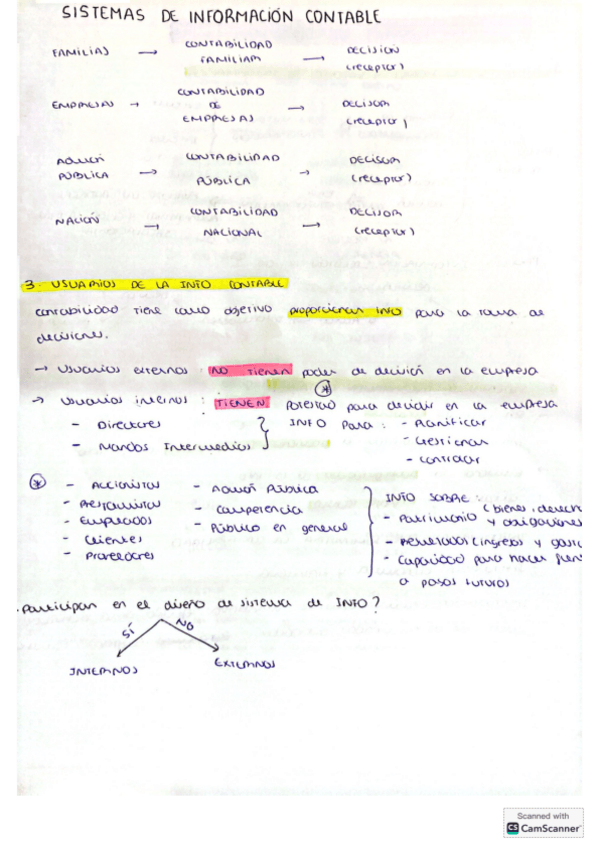 SISTEMAS DE INFORMACIÓN CONTABLE
FAMILIAS → CONTABILIDAD FAMILIAR → DECISIÓN (receptor)
EMPRESAS → CONTABILIDAD DE EMPRESAS → DECISOR (receptor)
ADMÓN PÚBLICA → CONTABILIDAD PÚBLICA → DECISOR (receptor)
NACIÓN → CONTABILIDAD NACIONAL → DECISOR (receptor)
3. USUARIOS DE LA INFO CONTABLE
contabilidad tiene como objetivo proporcionar info para la toma de
decisiones.
→ Usuarios externos: NO tienen poder de decisión en la empresa
→ Usuarios internos: TIENEN potestad para decidir en la empresa
- Directores
- Mandos Intermedios
INFO para: - Planificar
- Gestionar
- Controlar
* - Accionistas
- Prestamistas
- Empleados
- Clientes
- Proveedores
- Admón Pública
- Competencia
- Público en general
INFO SOBRE:
- Patrimonio (bienes, derech
y obligaciones
- Resultados (ingresos y gast
- Capacidad para hacer fren
a pagos futuros
Participan en el diseño de sistema de INFO?
SÍ NO
INTERNOS EXTERNOS
Scanned with
CS CamScanner